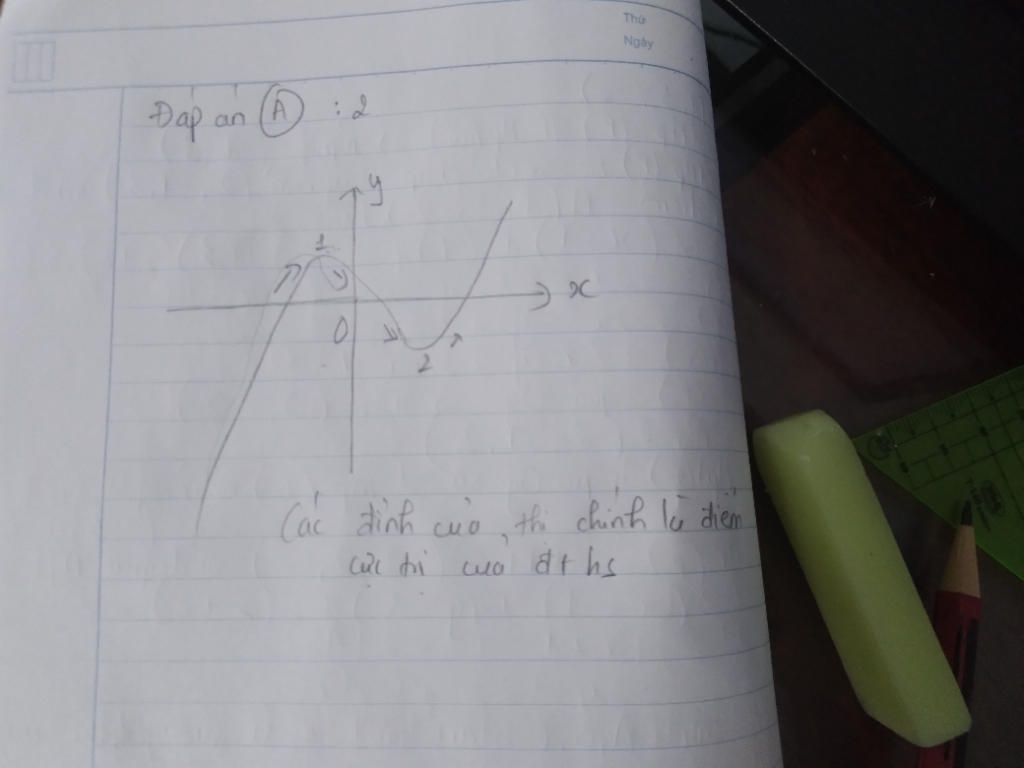 Thứ
Ngày
Đáp án A : 2
y
1
x
O
2
Các đỉnh của thị chính là điểm
cực trị của đt hs